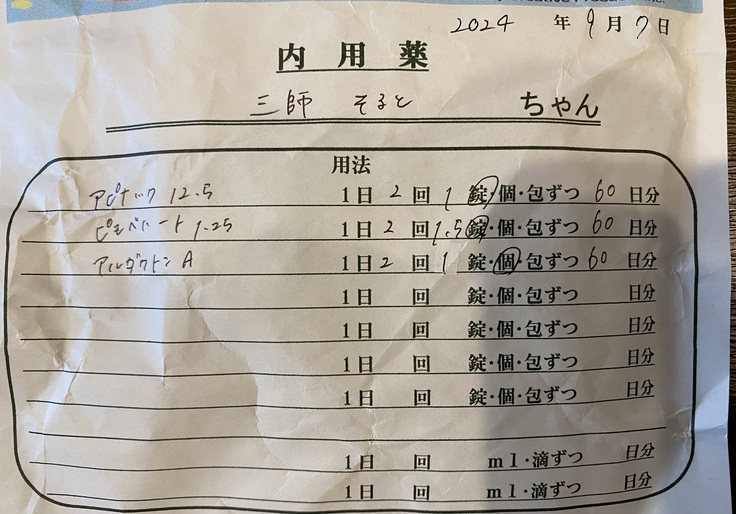 2024 年 9月 7日
内用薬
三師 そると ちゃん
用法
アピナック 12.5 1日 2 回 1 錠・個・包ずつ 60 日分
ピモベハート 1.25 1日 2 回 1.5 錠・個・包ずつ 60 日分
アルダクトン A 1日 2 回 1 錠・個・包ずつ 60 日分
1日 回 錠・個・包ずつ 日分
1日 回 錠・個・包ずつ 日分
1日 回 錠・個・包ずつ 日分
1日 回 錠・個・包ずつ 日分
1日 回 ml・滴ずつ 日分
1日 回 ml・滴ずつ 日分